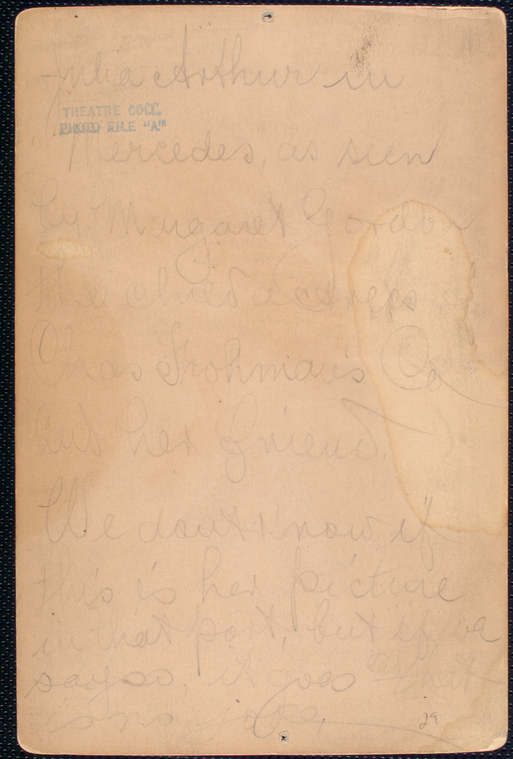 Julia Arthur in
THEATRE COLL.
PHOTO FILE "A"
Mercedes, as seen
by Margaret Gordon
the child actress of
Chas Frohman's Co
and her friend.
We dont know if
this is her picture
in that part, but if we
say so, it goes
is no joke,
29